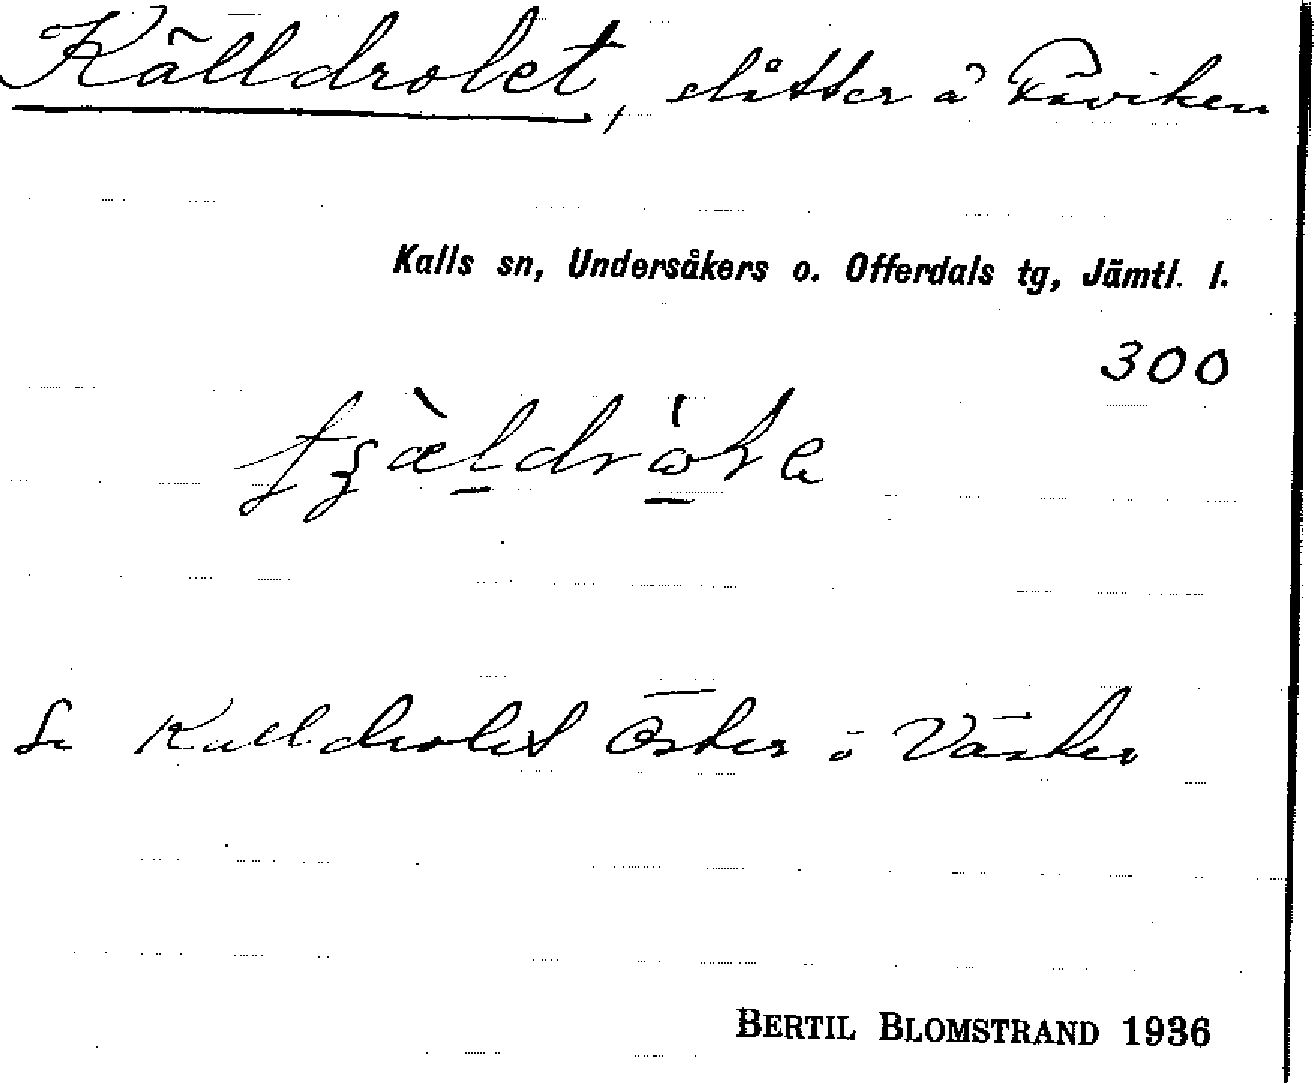 Källdrolet, slåtter å Fäviken
Kalls sn, Undersåkers o. Offerdals tg, Jämtl. l.
300
Se Källdrolet Öster o Väster
BERTIL BLOMSTRAND 1936